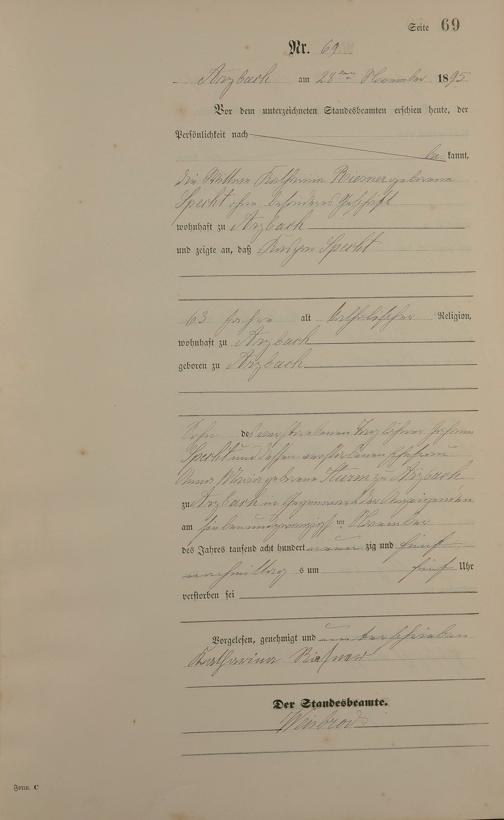 Seite 69
Nr. 69
Arzbach am 28ten November 1895
Vor dem unterzeichneten Standesbeamten erschien heute, der
Persönlichkeit nach
be kannt,
die Wittwe Katharina geborene
Specht ohne besonderes Geschäft
wohnhaft zu Arzbach
und zeigte an, daß Specht
63 Jahre alt katholischer Religion,
wohnhaft zu Arzbach
geboren zu Arzbach
Sohn des verstorbenen Johann
Specht und dessen verstorbenen Ehefrau
Anna Maria geborene Sturm zu Arzbach
zu Arzbach in Gegenwart der Anzeigenden
am siebenundzwanzigsten November
des Jahres tausend acht hundert neunzig und fünf
nachmittags um fünf Uhr
verstorben sei
Vorgelesen, genehmigt und unterschrieben
Katharina
Der Standesbeamte.
Form. C